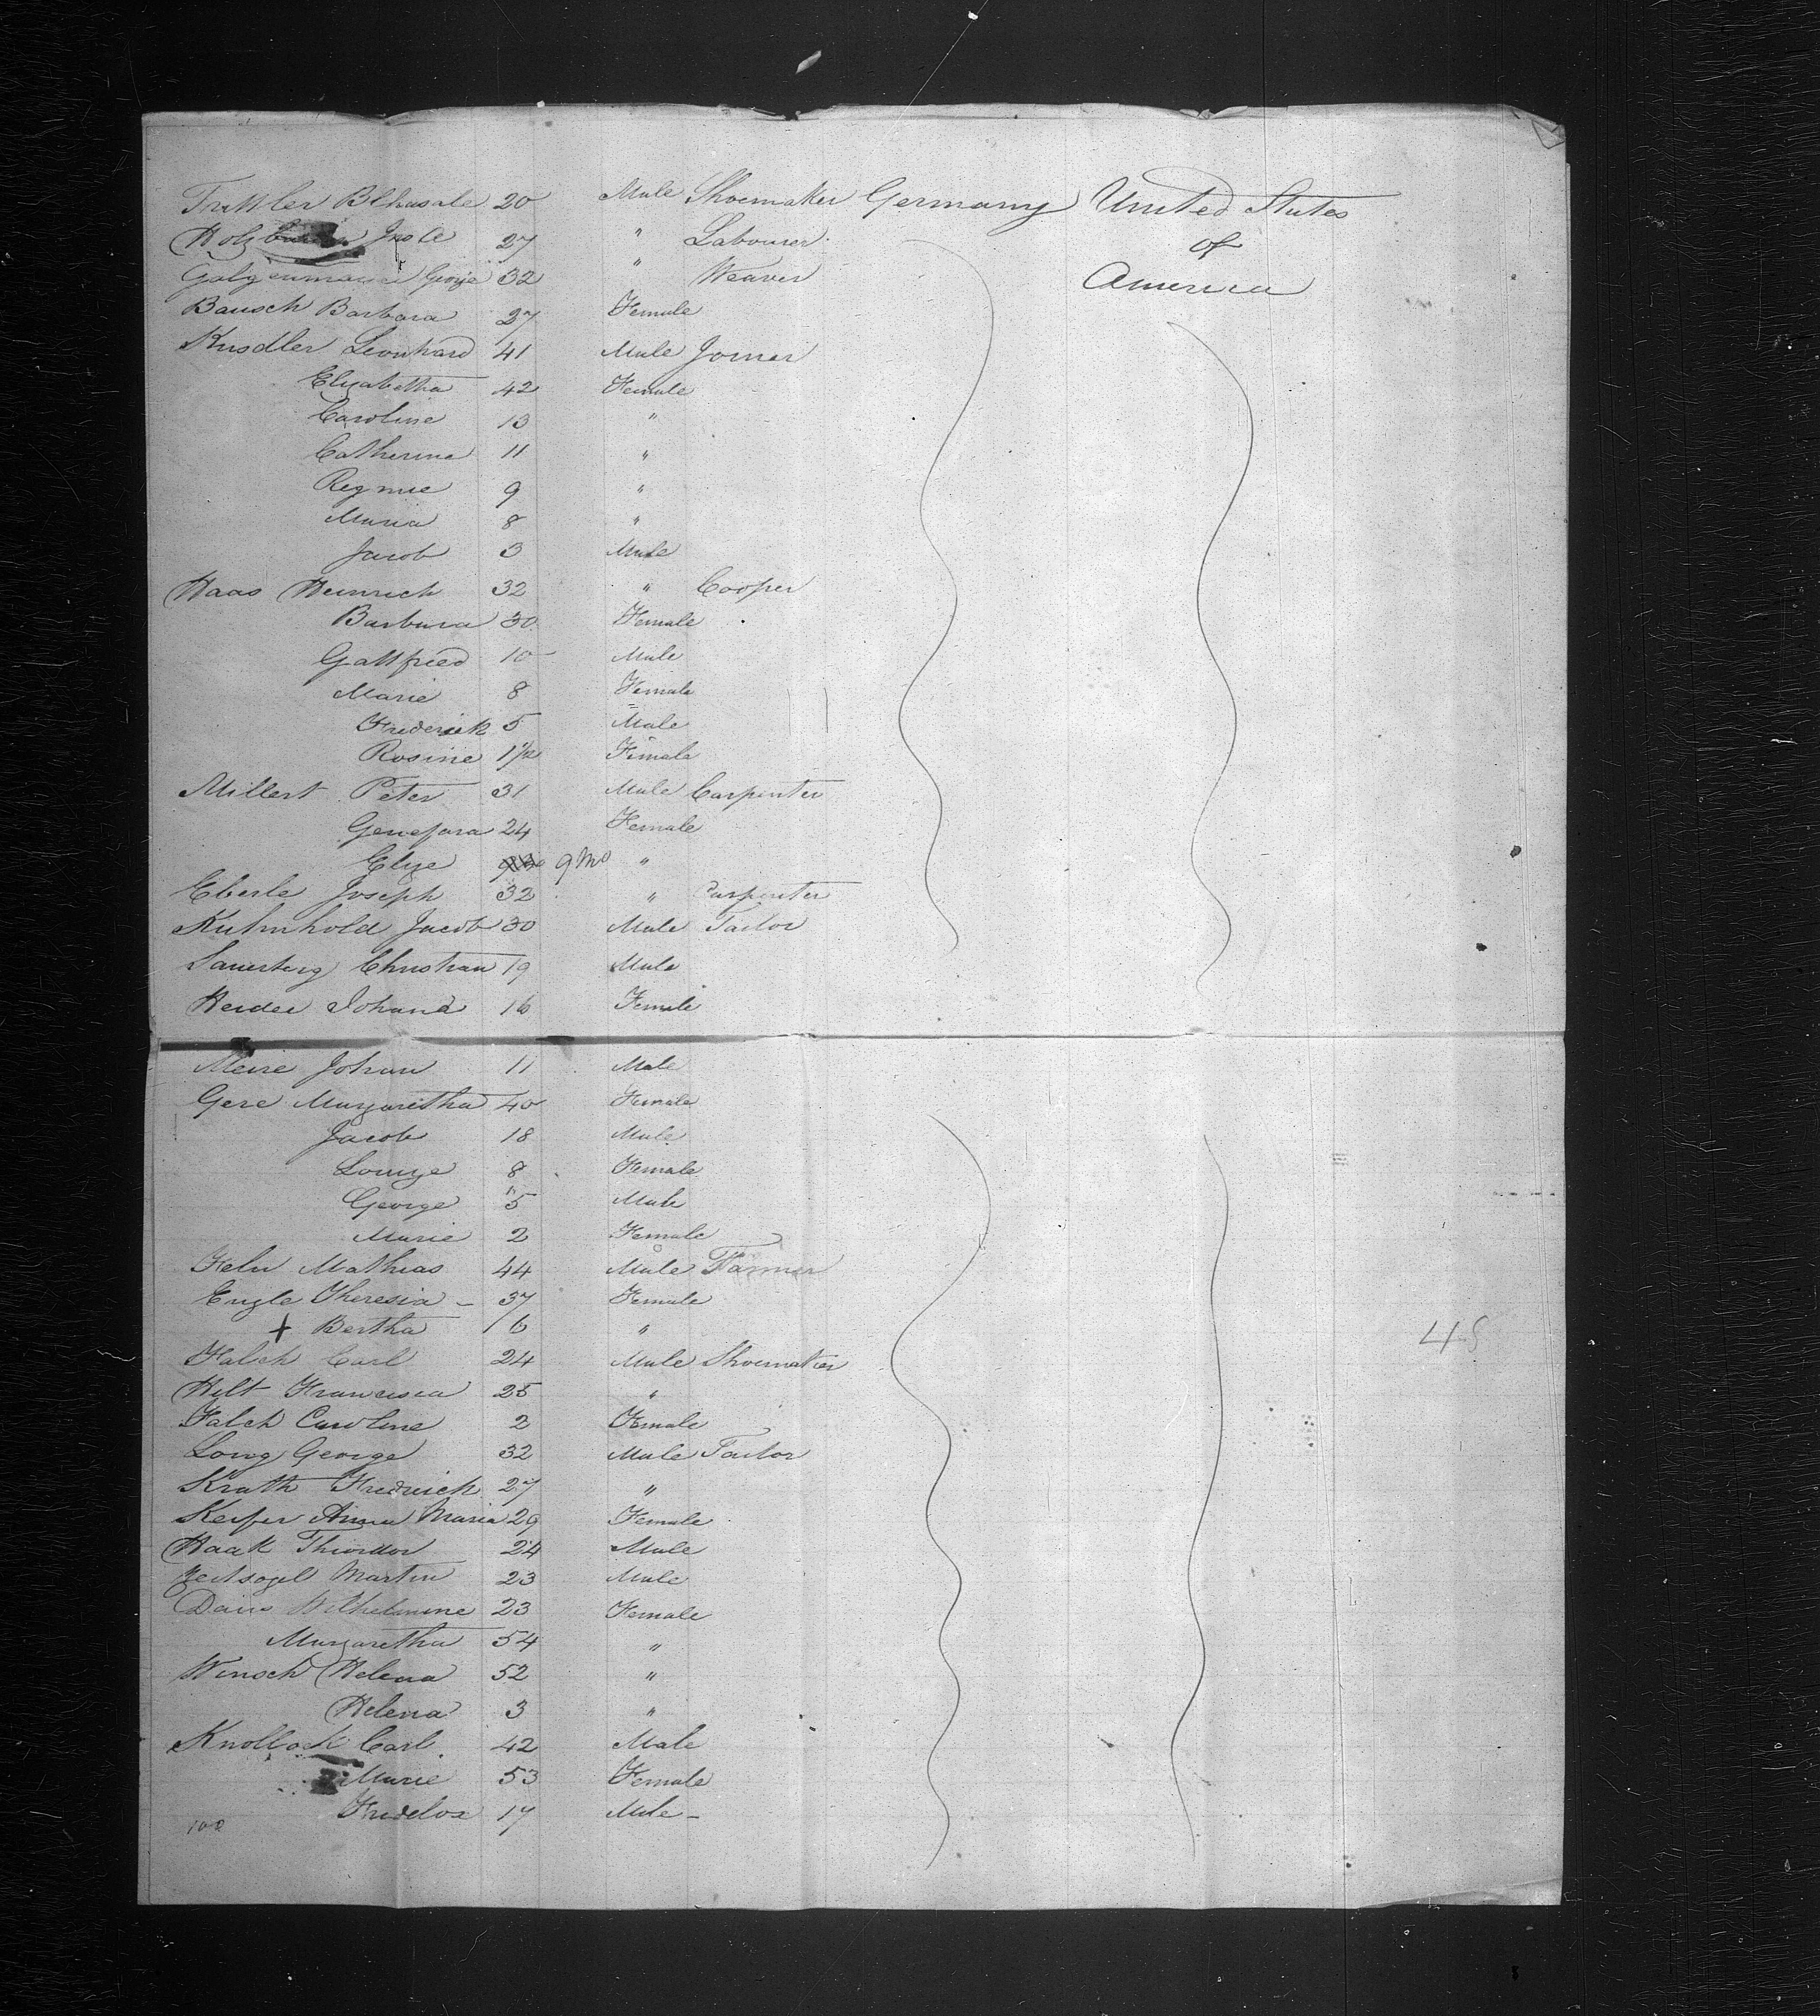 Trittler Blhasale 20 Male Shoemaker Germany United States
Holz Jno 27 " Labourer of
Galgenmaier George 32 " Weaver America
Bausch Barbara 27 Female
Knodler Leonhard 41 Male Joiner
Elizabetha 42 Female
Caroline 13 "
Catherine 11 "
Regine 9 "
Maria 8 "
Jacob 3 Male
Haas Heinrich 32 " Cooper
Barbara 30 Female
Gottfried 10 Male
Marie 8 Female
Frederick 5 Male
Rosine 1 1/2 Female
Millert Peter 31 Male Carpenter
Genefara 24 Female
Elise 9 Mo "
Eberle Joseph 32 " Carpenter
Kuhnhold Jacob 30 Male Tailor
Sauerberg Christian 19 Male
Herder Johana 16 Female
Meire Johan 11 Male
Gere Margaretha 40 Female
Jacob 18 Male
Louise 8 Female
George 5 Male
Marie 2 Female
Fehr Mathias 44 Male Farmer
Engle Theresia - 37 Female
+ Bertha 16 "
Falch Carl 24 Male Shoemaker 48
Hilt Francisca 25 "
Falch Caroline 2 Female
Long George 32 Male Tailor
Krath Fredrich 27 "
Keifer Anna Maria 29 Female
Haak Theordor 24 Male
Martin 23 Male
Dais Wilhelmine 23 Female
Margaretha 54 "
Winsch Helena 52 "
Helena 3 "
Knollock Carl 42 Male
Marie 53 Female
Fridelox 17 Male -
100